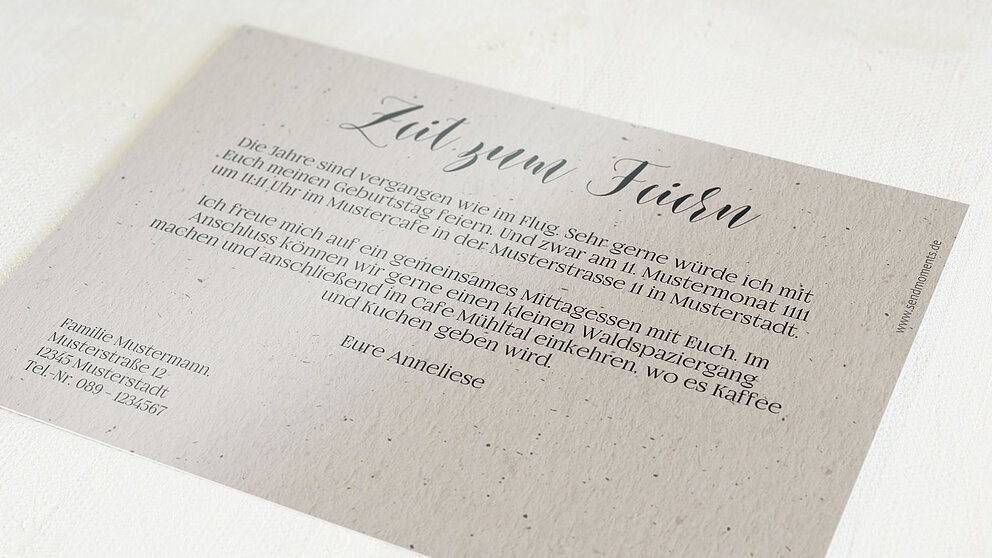 Zeit zum Feiern
Die Jahre sind vergangen wie im Flug. Sehr gerne würde ich mit
Euch meinen Geburtstag feiern. Und zwar am 11. Mustermonat 1111
um 11:11 Uhr im Mustercafe in der Musterstrasse 11 in Musterstadt.
Ich freue mich auf ein gemeinsames Mittagessen mit Euch. Im
Anschluss können wir gerne einen kleinen Waldspaziergang
machen und anschließend im Cafe Mühltal einkehren, wo es Kaffee
und Kuchen geben wird.
Eure Anneliese
Familie Mustermann.
Musterstraße 12
12345 Musterstadt
Tel.-Nr. 089 - 1234567
www.sendmoments.de